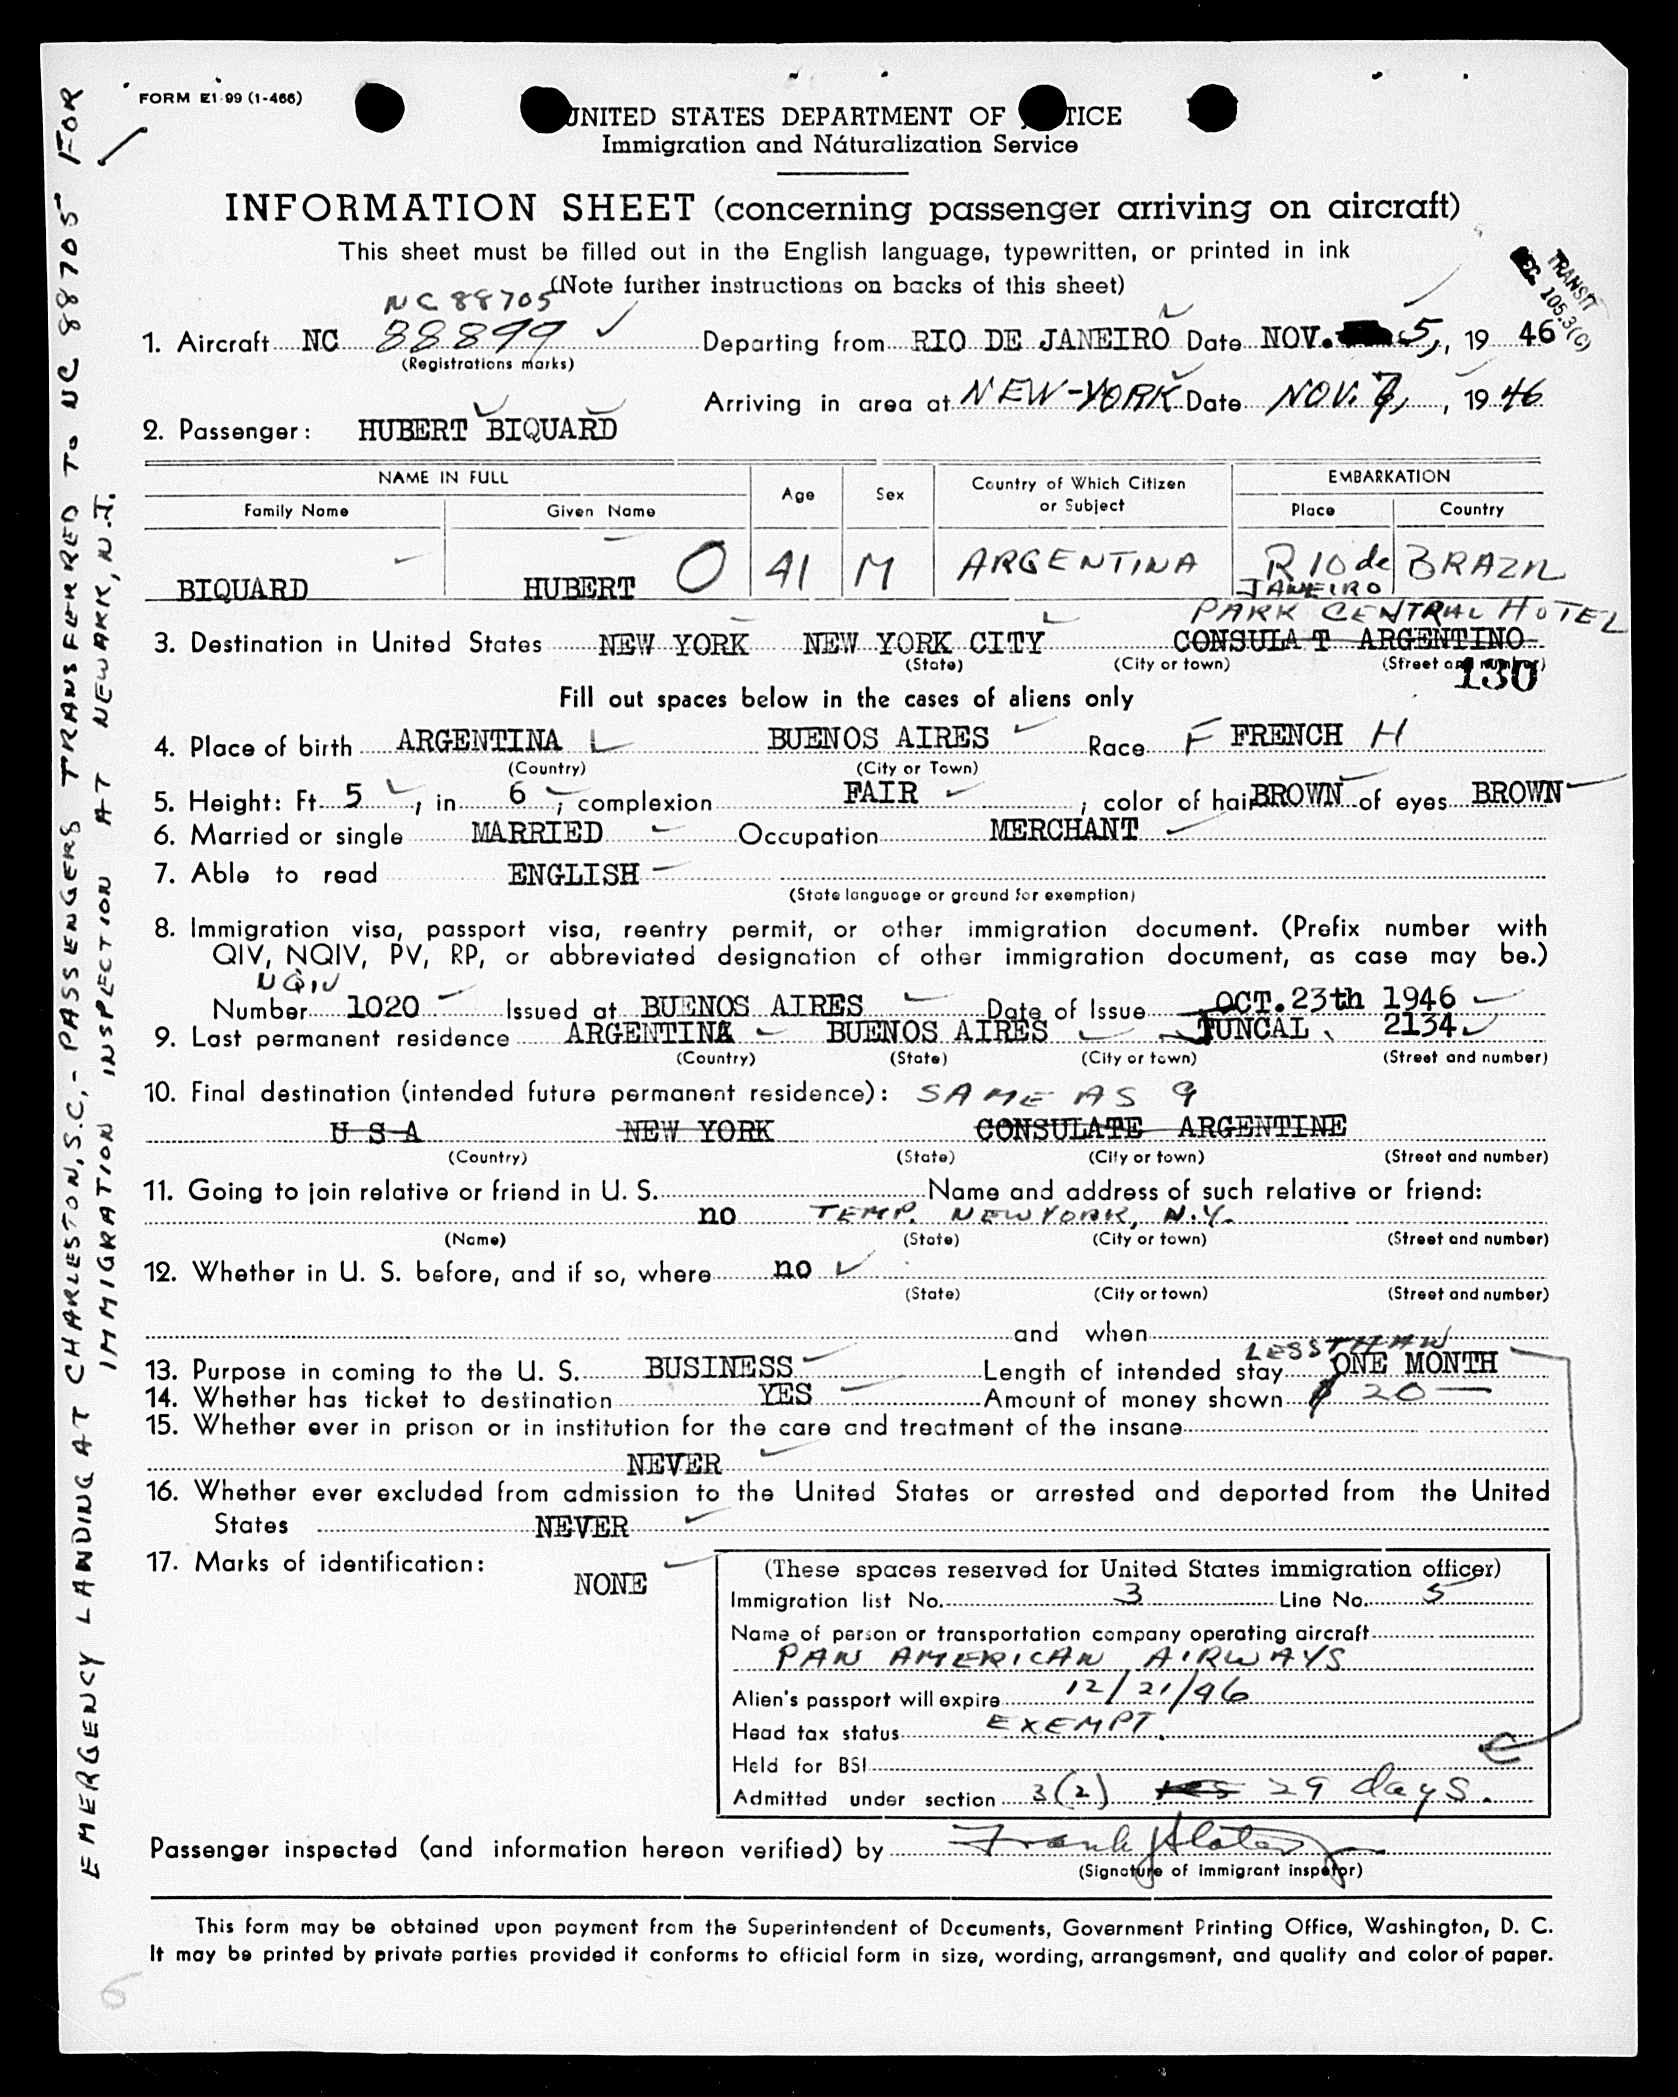 FORM EI-99 (1-466)
UNITED STATES DEPARTMENT OF TICE
Immigration and Naturalization Service
INFORMATION SHEET (concerning passenger arriving on aircraft)
This sheet must be filled out in the English language, typewritten, or printed in ink
(Note further instructions on backs of this sheet)
TRANSIT
SEC. 105.3(C)
NC 88705
1. Aircraft NC 88899 Departing from RIO DE JANEIRO Date NOV. 5, 1946
(Registrations marks)
Arriving in area at NEW-YORK Date NOV. 7, 1946
2. Passenger: HUBERT BIQUARD
NAME IN FULL Age Sex Country of Which Citizen or Subject EMBARKATION
Family Name Given Name Place Country
BIQUARD HUBERT O 41 M ARGENTINA RIO de JANEIRO BRAZIL
PARK CENTRAL HOTEL
3. Destination in United States NEW YORK NEW YORK CITY CONSULAT ARGENTINO
(State) (City or town) (Street and number)
130
Fill out spaces below in the cases of aliens only
4. Place of birth ARGENTINA BUENOS AIRES Race F FRENCH H
(Country) (City or Town)
5. Height: Ft. 5, in. 6; complexion FAIR; color of hair BROWN of eyes BROWN
6. Married or single MARRIED Occupation MERCHANT
7. Able to read ENGLISH
(State language or ground for exemption)
8. Immigration visa, passport visa, reentry permit, or other immigration document. (Prefix number with
QIV, NQIV, PV, RP, or abbreviated designation of other immigration document, as case may be.)
NQIV
Number 1020 Issued at BUENOS AIRES Date of Issue OCT. 23th 1946
9. Last permanent residence ARGENTINA BUENOS AIRES JUNCAL 2134
(Country) (State) (City or town) (Street and number)
10. Final destination (intended future permanent residence): SAME AS 9
U S A NEW YORK CONSULATE ARGENTINE
(Country) (State) (City or town) (Street and number)
11. Going to join relative or friend in U. S. Name and address of such relative or friend:
no TEMP. NEW YORK, N.Y.
(Name) (State) (City or town) (Street and number)
12. Whether in U. S. before, and if so, where no
(State) (City or town) (Street and number)
and when
LESS THAN
13. Purpose in coming to the U. S. BUSINESS Length of intended stay ONE MONTH
14. Whether has ticket to destination YES Amount of money shown $ 20—
15. Whether ever in prison or in institution for the care and treatment of the insane
NEVER
16. Whether ever excluded from admission to the United States or arrested and deported from the United
States NEVER
17. Marks of identification:
NONE
(These spaces reserved for United States immigration officer)
Immigration list No. 3 Line No. 5
Name of person or transportation company operating aircraft
PAN AMERICAN AIRWAYS
Alien's passport will expire 12/21/46
Head tax status EXEMPT.
Held for BSI
Admitted under section 3(2) 29 days.
Passenger inspected (and information hereon verified) by Frank J Slater
(Signature of immigrant inspetor)
This form may be obtained upon payment from the Superintendent of Documents, Government Printing Office, Washington, D. C.
It may be printed by private parties provided it conforms to official form in size, wording, arrangement, and quality and color of paper.
6
EMERGENCY LANDING AT CHARLESTON, S.C. - PASSENGERS TRANSFERRED TO NC 88705 FOR
IMMIGRATION INSPECTION AT NEWARK, N.J.